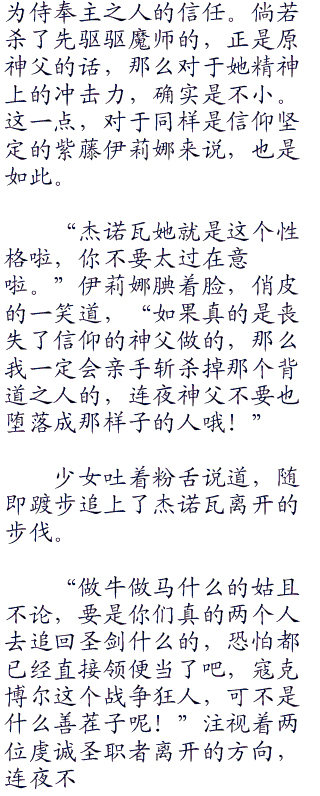 为侍奉主之人的信任。倘若
杀了先驱驱魔师的，正是原
神父的话，那么对于她精神
上的冲击力，确实是不小。
这一点，对于同样是信仰坚
定的紫藤伊莉娜来说，也是
如此。
“杰诺瓦她就是这个性
格啦，你不要太过在意
啦。”伊莉娜腆着脸，俏皮
的一笑道，“如果真的是丧
失了信仰的神父做的，那么
我一定会亲手斩杀掉那个背
道之人的，连夜神父不要也
堕落成那样子的人哦！”
少女吐着粉舌说道，随
即踱步追上了杰诺瓦离开的
步伐。
“做牛做马什么的姑且
不论，要是你们真的两个人
去追回圣剑什么的，恐怕都
已经直接领便当了吧，寇克
博尔这个战争狂人，可不是
什么善茬子呢！”注视着两
位虔诚圣职者离开的方向，
连夜不